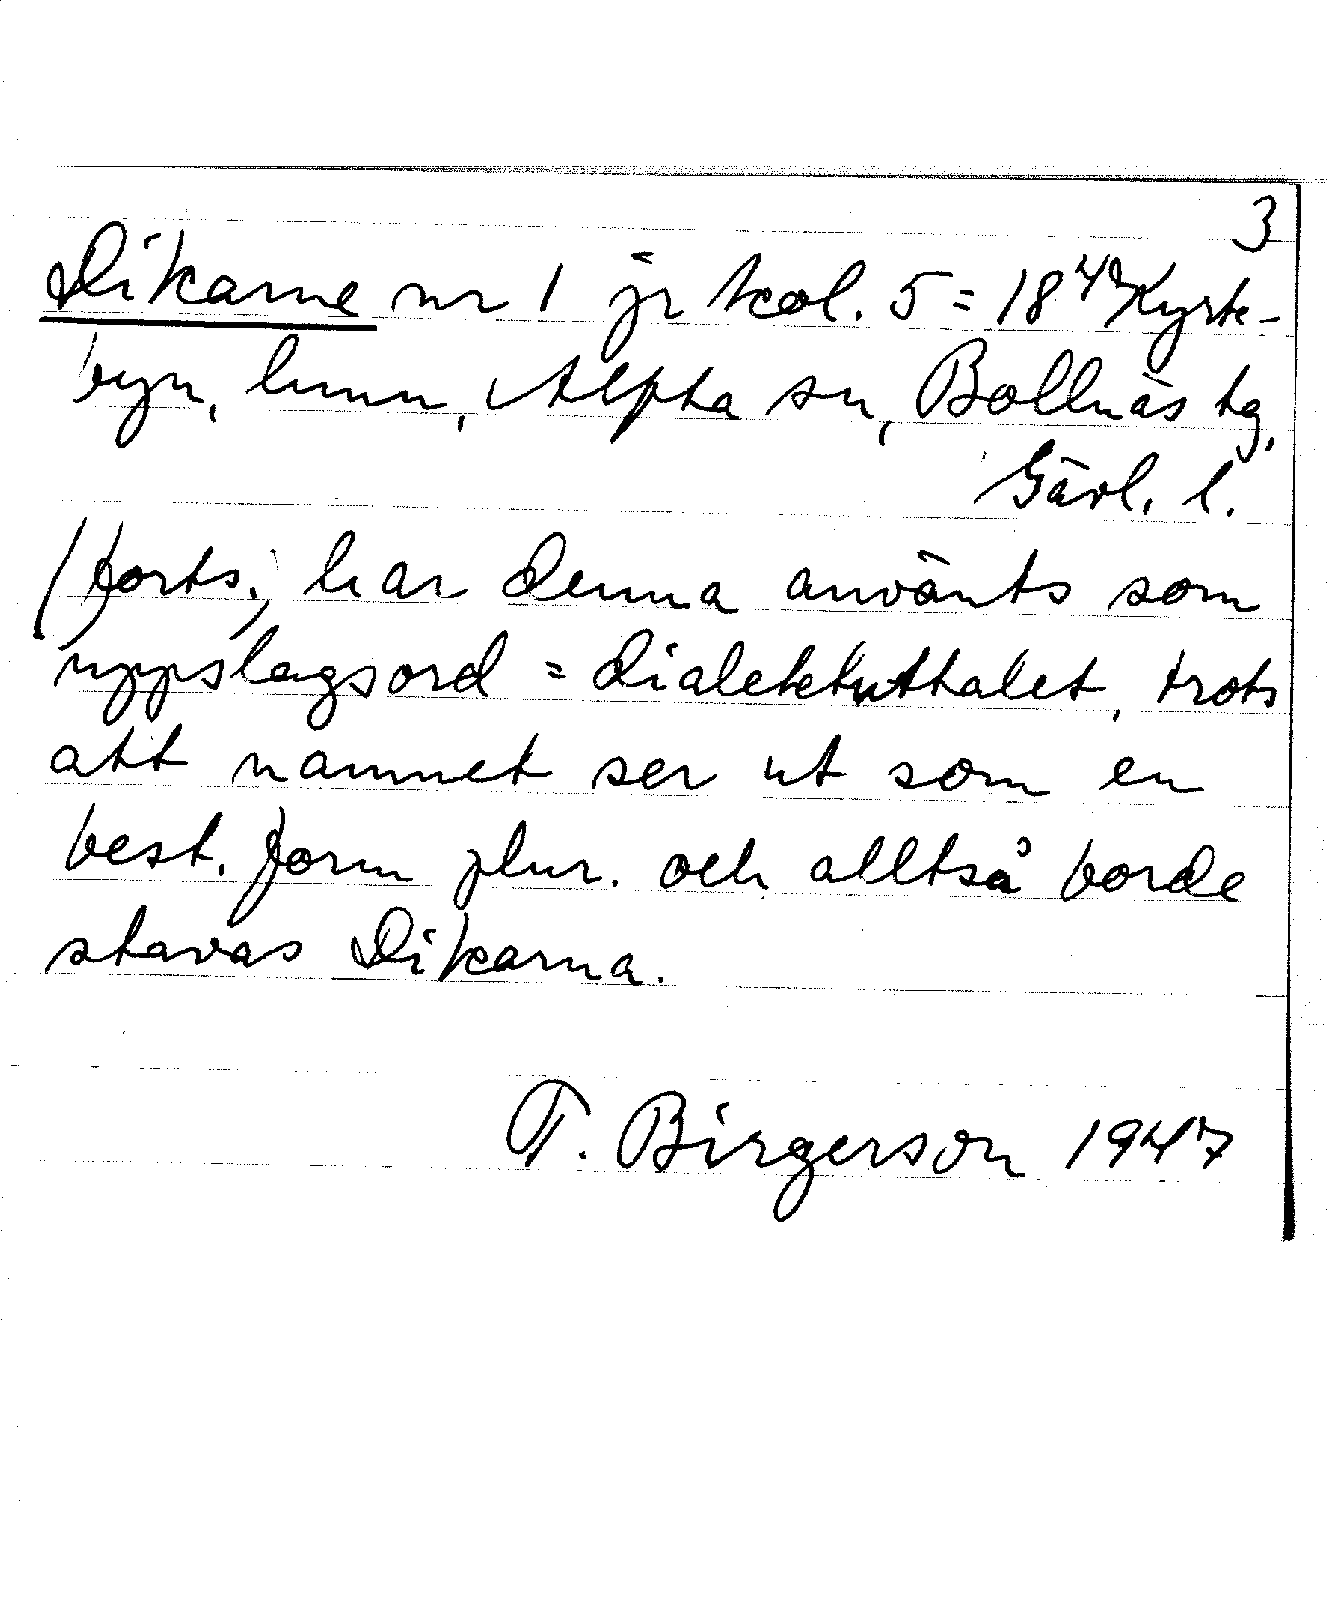 3
Dikarne nr 1 jr kol. 5 = 18 Kyrk-
byn, hmn, Alfta sn, Bollnäs tg,
Gävl. l.
(forts.) har denna använts som
uppslagsord = dialektuttalet, trots
att namnet ser ut som en
best. form plur. och alltså borde
stavas Dikarna.
T. Birgerson 1947